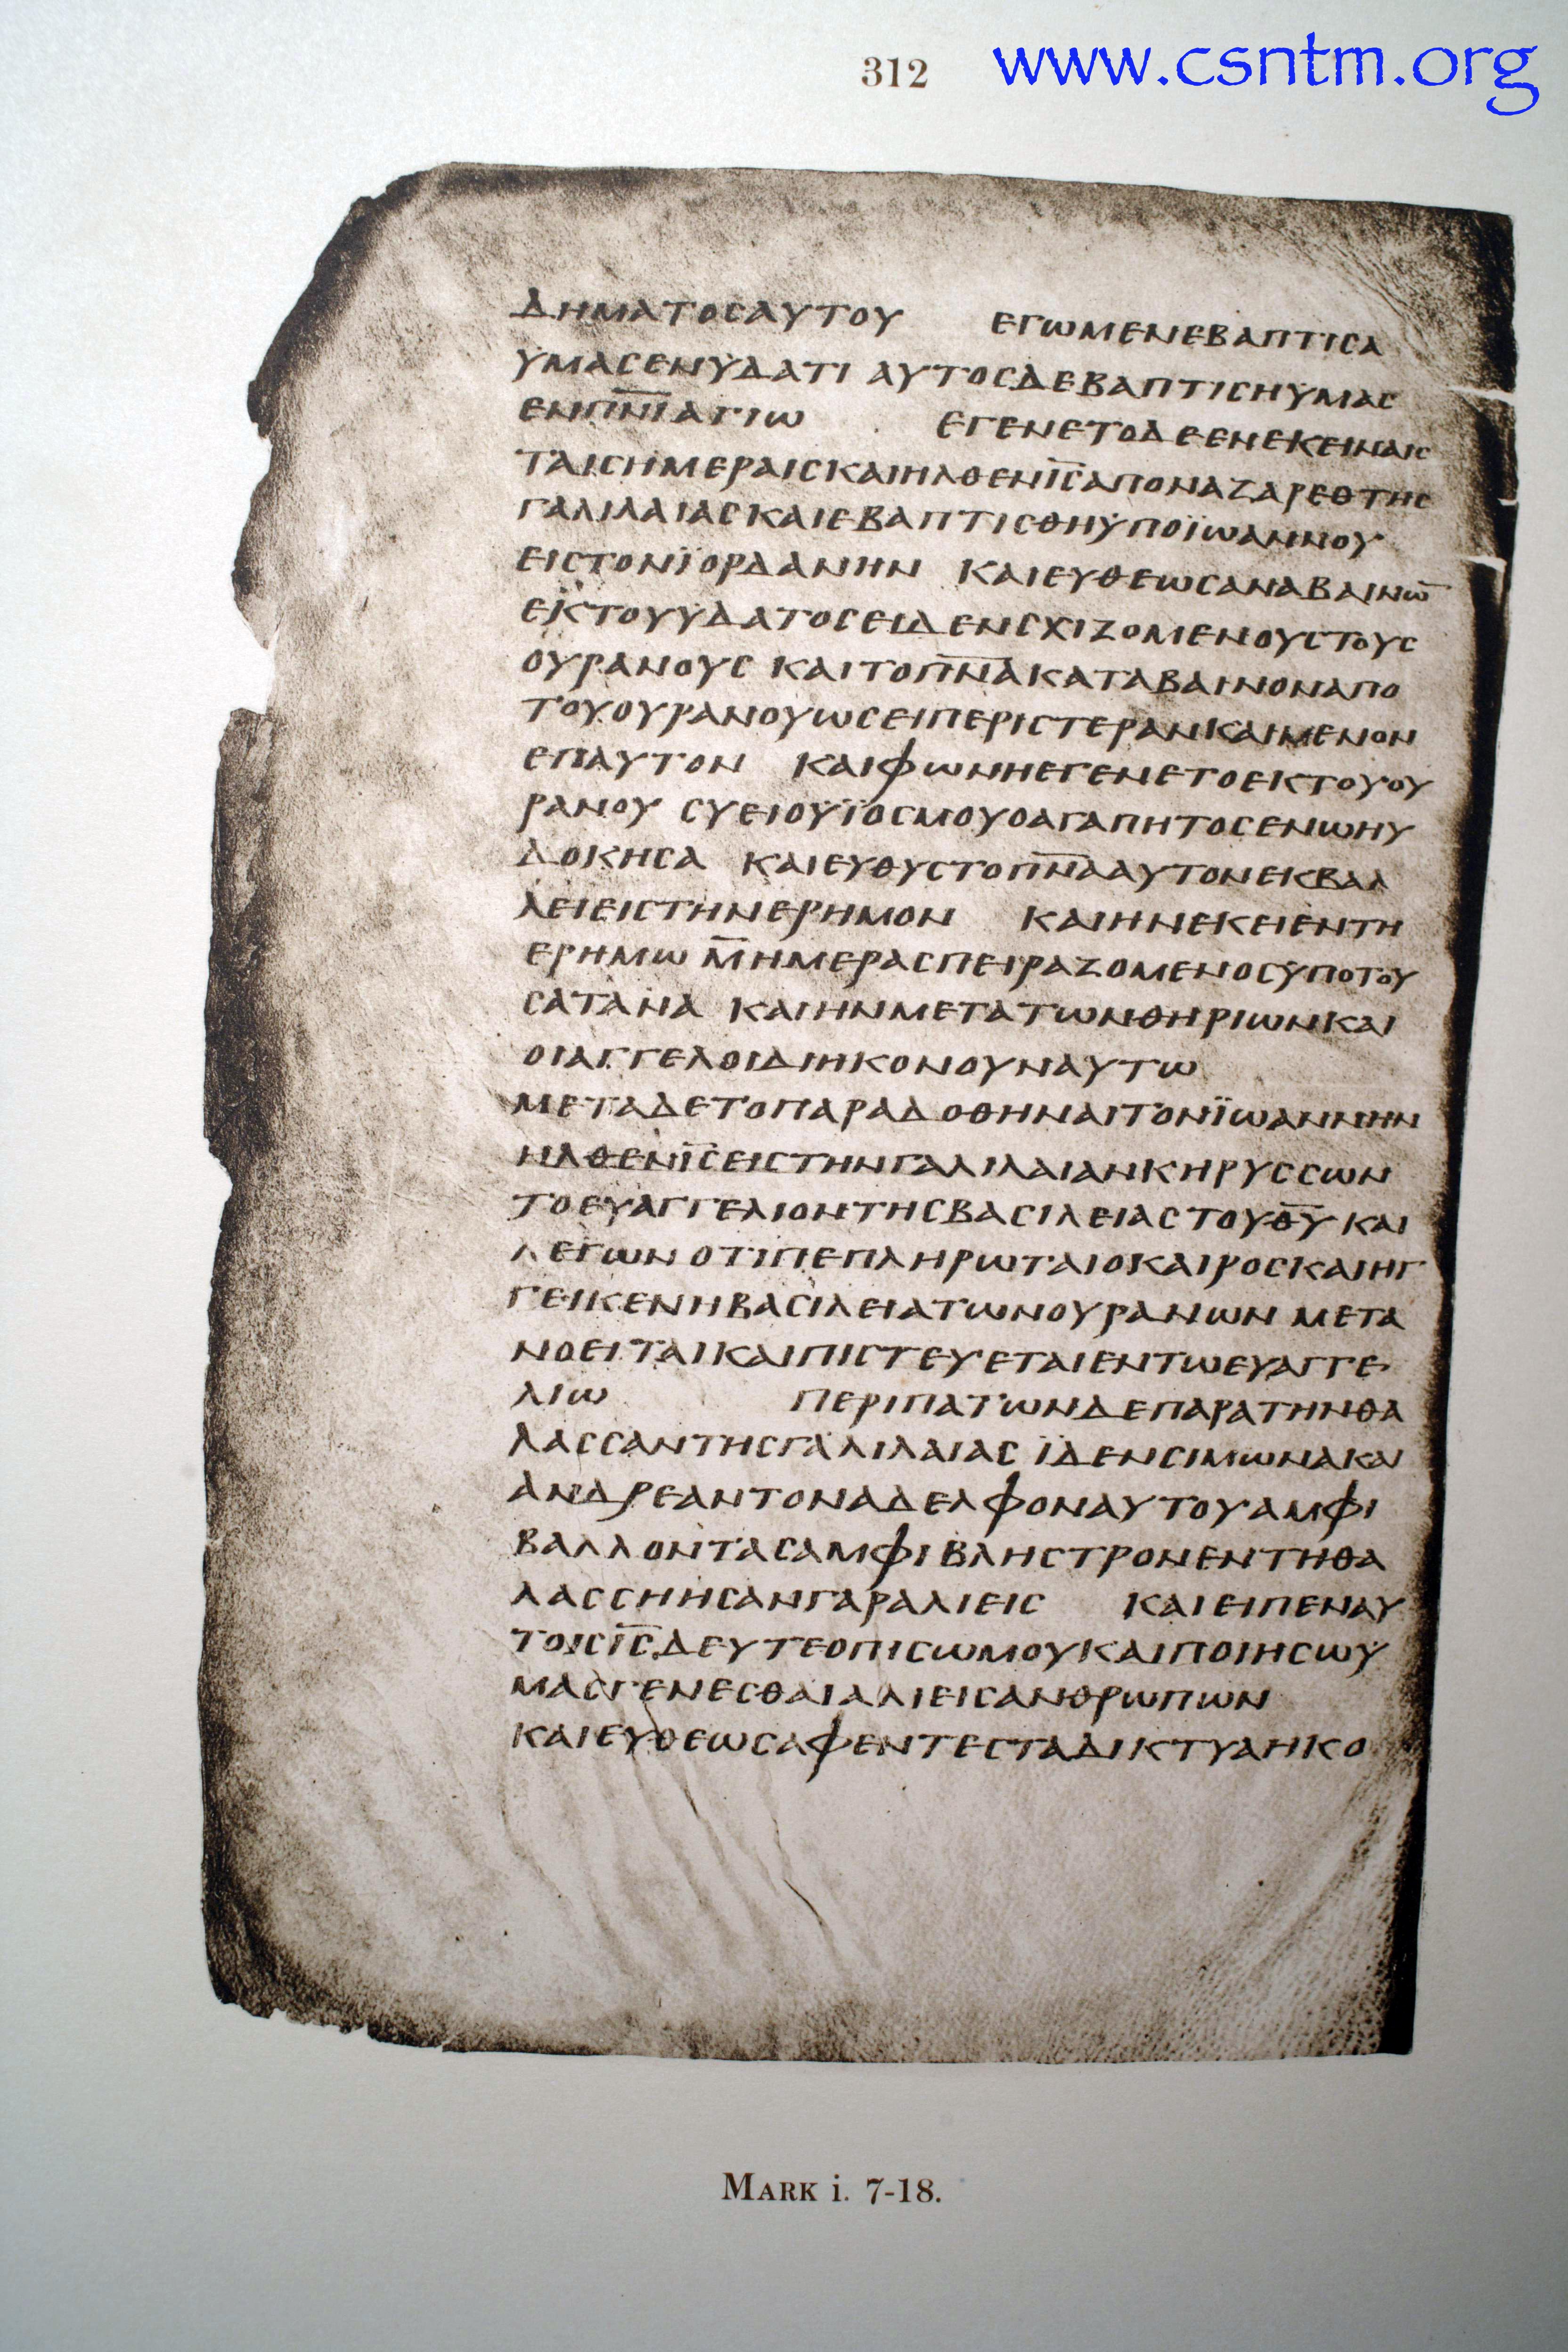 312
www.csntm.org
ΔΗΜΑΤΟCΑΥΤΟΥ ΕΓωΜΕΝΕΒΑΠΤΙCΑ
ΫΜΑCΕΝΫΔΑΤΙ ΑΥΤΟCΔΕΒΑΠΤΙCΗΫΜΑC
ΕΝΠ̅Ν̅Ι̅ΑΓΙω ΕΓΕΝΕΤΟΔΕΕΝΕΚΕΙΝΑΙC
ΤΑΙCΗΜΕΡΑΙCΚΑΙΗΛΘΕΝΙ̅C̅ΑΠΟΝΑΖΑΡΕΘΤΗC
ΓΑΛΙΛΑΙΑCΚΑΙΕΒΑΠΤΙCΘΗΫΠΟΪωΑΝΝΟΥ
ΕΙCΤΟΝΪΟΡΔΑΝΗΝ ΚΑΙΕΥΘΕωCΑΝΑΒΑΙΝω̅
ΕΚΤΟΥΫΔΑΤΟCΕΙΔΕΝCΧΙΖΟΜΕΝΟΥCΤΟΥC
ΟΥΡΑΝΟΥC ΚΑΙΤΟΠ̅Ν̅Α̅ΚΑΤΑΒΑΙΝΟΝΑΠΟ
ΤΟΥΟΥΡΑΝΟΥωCΕΙΠΕΡΙCΤΕΡΑΝΚΑΙΜΕΝΟΝ
ΕΠΑΥΤΟΝ ΚΑΙΦωΝΗΕΓΕΝΕΤΟΕΚΤΟΥΟΥ
ΡΑΝΟΥ CΥΕΙΟΫΪΟCΜΟΥΟΑΓΑΠΗΤΟCΕΝωΗΥ
ΔΟΚΗCΑ ΚΑΙΕΥΘΥCΤΟΠ̅Ν̅Α̅ΑΥΤΟΝΕΚΒΑΛ
ΛΕΙΕΙCΤΗΝΕΡΗΜΟΝ ΚΑΙΗΝΕΚΕΙΕΝΤΗ
ΕΡΗΜω Μ̅ΗΜΕΡΑCΠΕΙΡΑΖΟΜΕΝΟCΫΠΟΤΟΥ
CΑΤΑΝΑ ΚΑΙΗΝΜΕΤΑΤωΝΘΗΡΙωΝΚΑΙ
ΟΙΑΓΓΕΛΟΙΔΙΗΚΟΝΟΥΝΑΥΤω
ΜΕΤΑΔΕΤΟΠΑΡΑΔΟΘΗΝΑΙΤΟΝΪωΑΝΝΗΝ
ΗΛΘΕΝΙ̅C̅ΕΙCΤΗΝΓΑΛΙΛΑΙΑΝΚΗΡΥCCωΝ
ΤΟΕΥΑΓΓΕΛΙΟΝΤΗCΒΑCΙΛΕΙΑCΤΟΥΘ̅Υ̅ ΚΑΙ
ΛΕΓωΝ ΟΤΙΠΕΠΛΗΡωΤΑΙΟΚΑΙΡΟCΚΑΙΗΓ
ΓΕΙΚΕΝΗΒΑCΙΛΕΙΑΤωΝΟΥΡΑΝωΝ ΜΕΤΑ
ΝΟΕΙΤΑΙΚΑΙΠΙCΤΕΥΕΤΑΙΕΝΤωΕΥΑΓΓΕ
ΛΙω ΠΕΡΙΠΑΤωΝΔΕΠΑΡΑΤΗΝΘΑ
ΛΑCCΑΝΤΗCΓΑΛΙΛΑΙΑC ΪΔΕΝCΙΜωΝΑΚΑΙ
ΑΝΔΡΕΑΝΤΟΝΑΔΕΛΦΟΝΑΥΤΟΥΑΜΦΙ
ΒΑΛΛΟΝΤΑCΑΜΦΙΒΛΗCΤΡΟΝΕΝΤΗΘΑ
ΛΑCCΗΗCΑΝΓΑΡΑΛΙΕΙC ΚΑΙΕΙΠΕΝΑΥ
ΤΟΙCΙ̅C̅ΔΕΥΤΕΟΠΙCωΜΟΥΚΑΙΠΟΙΗCωΥ
ΜΑCΓΕΝΕCΘΑΙΑΛΙΕΙCΑΝΘΡωΠωΝ
ΚΑΙΕΥΘΕωCΑΦΕΝΤΕCΤΑΔΙΚΤΥΑΗΚΟ
MARK i. 7-18.